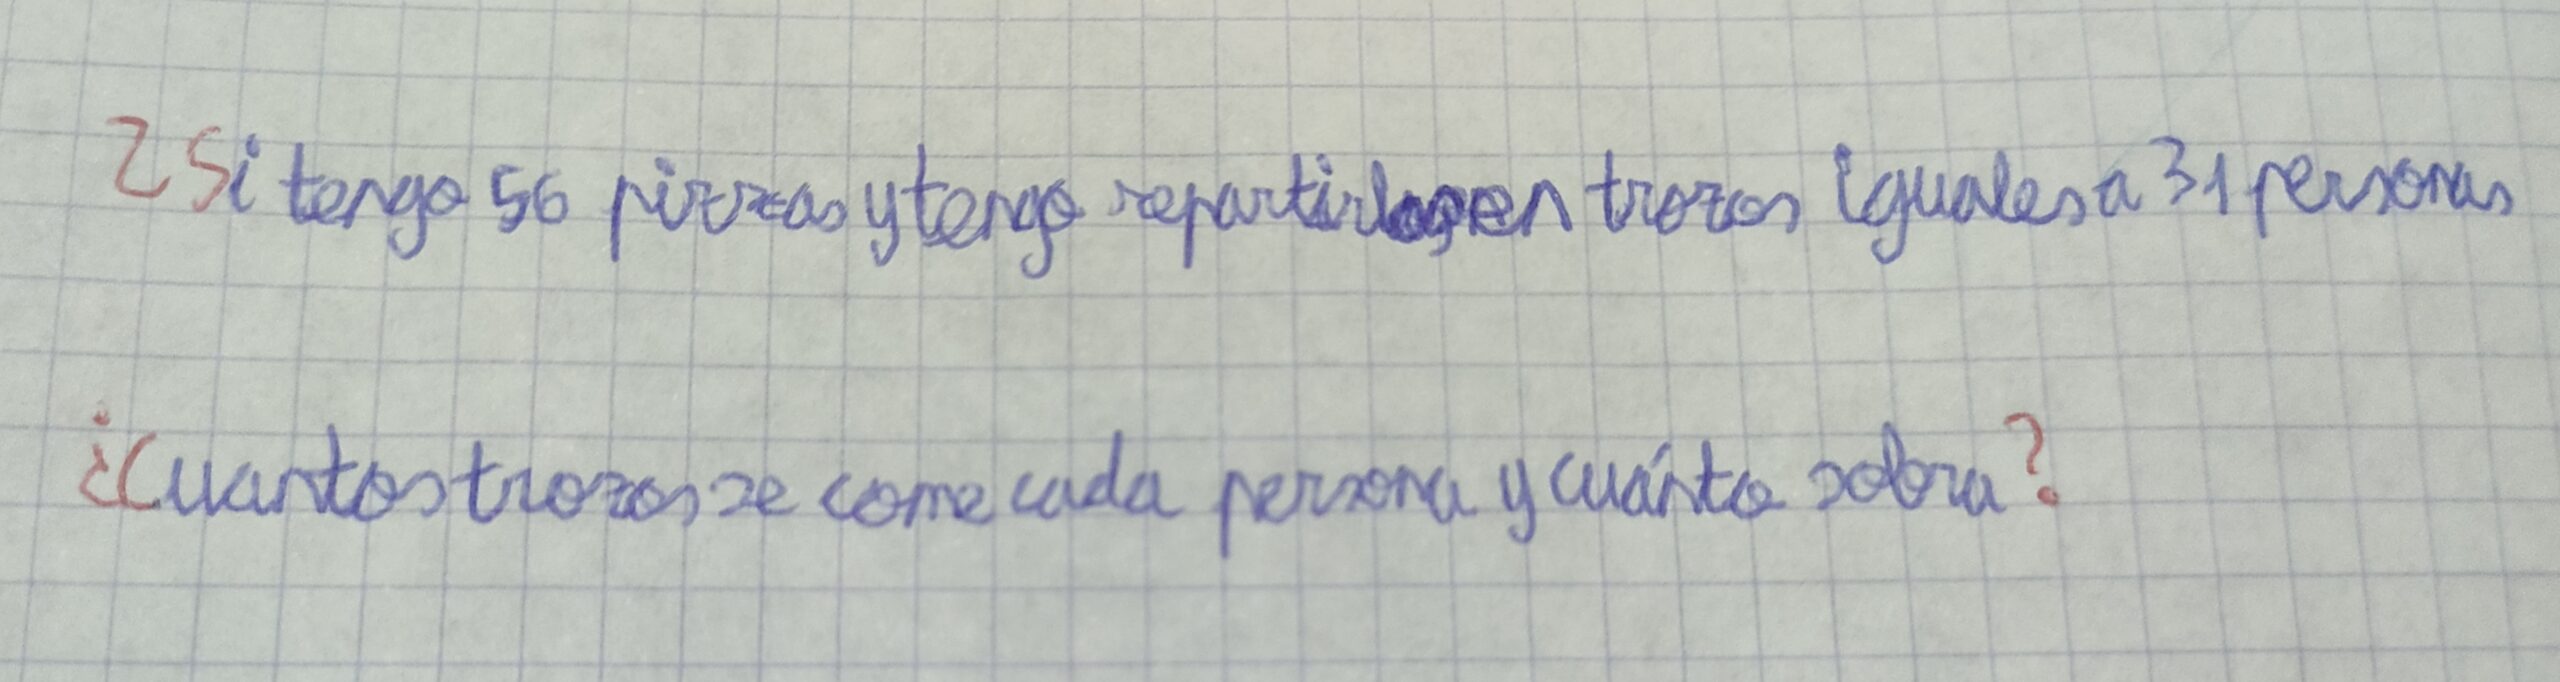 2 Si tengo 56 pizzas y tengo repartirlas en trozos iguales a 31 personas
¿Cuantos trozos se come cada persona y cuánto sobra?